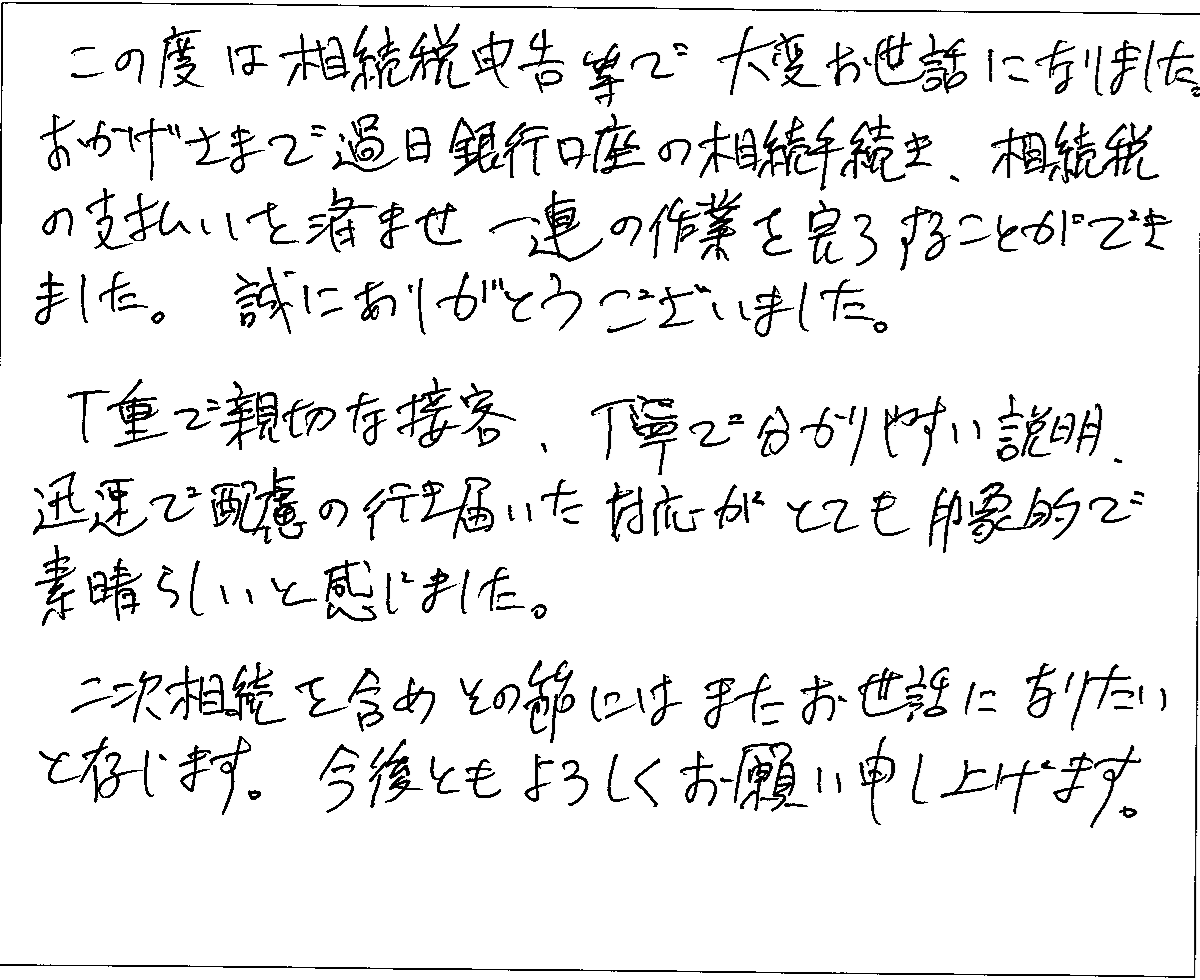 この度は相続税申告等で大変お世話になりました。
おかげさまで過日銀行口座の相続手続き、相続税
の支払いを済ませ一連の作業を完了することができ
ました。 誠にありがとうございました。
丁重で親切な接客、丁寧で分かりやすい説明、
迅速で配慮の行き届いた対応がとても印象的で
素晴らしいと感じました。
二次相続を含めその節にはまたお世話になりたい
と存じます。 今後ともよろしくお願い申し上げます。